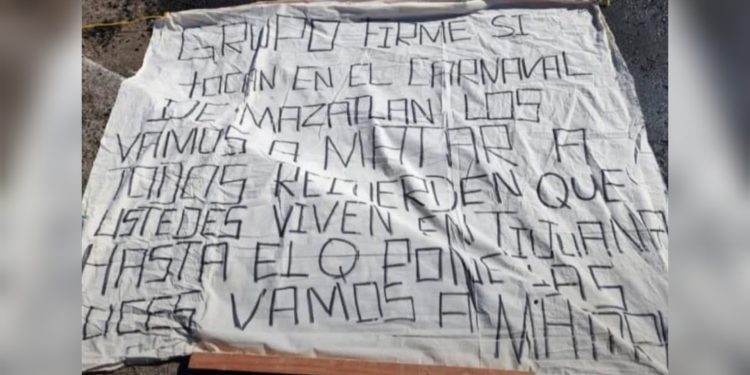 GRUPO FIRME SI
TOCAN EN EL CARNAVAL
DE MAZATLAN LOS
VAMOS A MATAR A
TODOS RECUERDEN QUE
USTEDES VIVEN EN TIJUANA
HASTA EL Q PONE LAS
VAMOS A MATAR